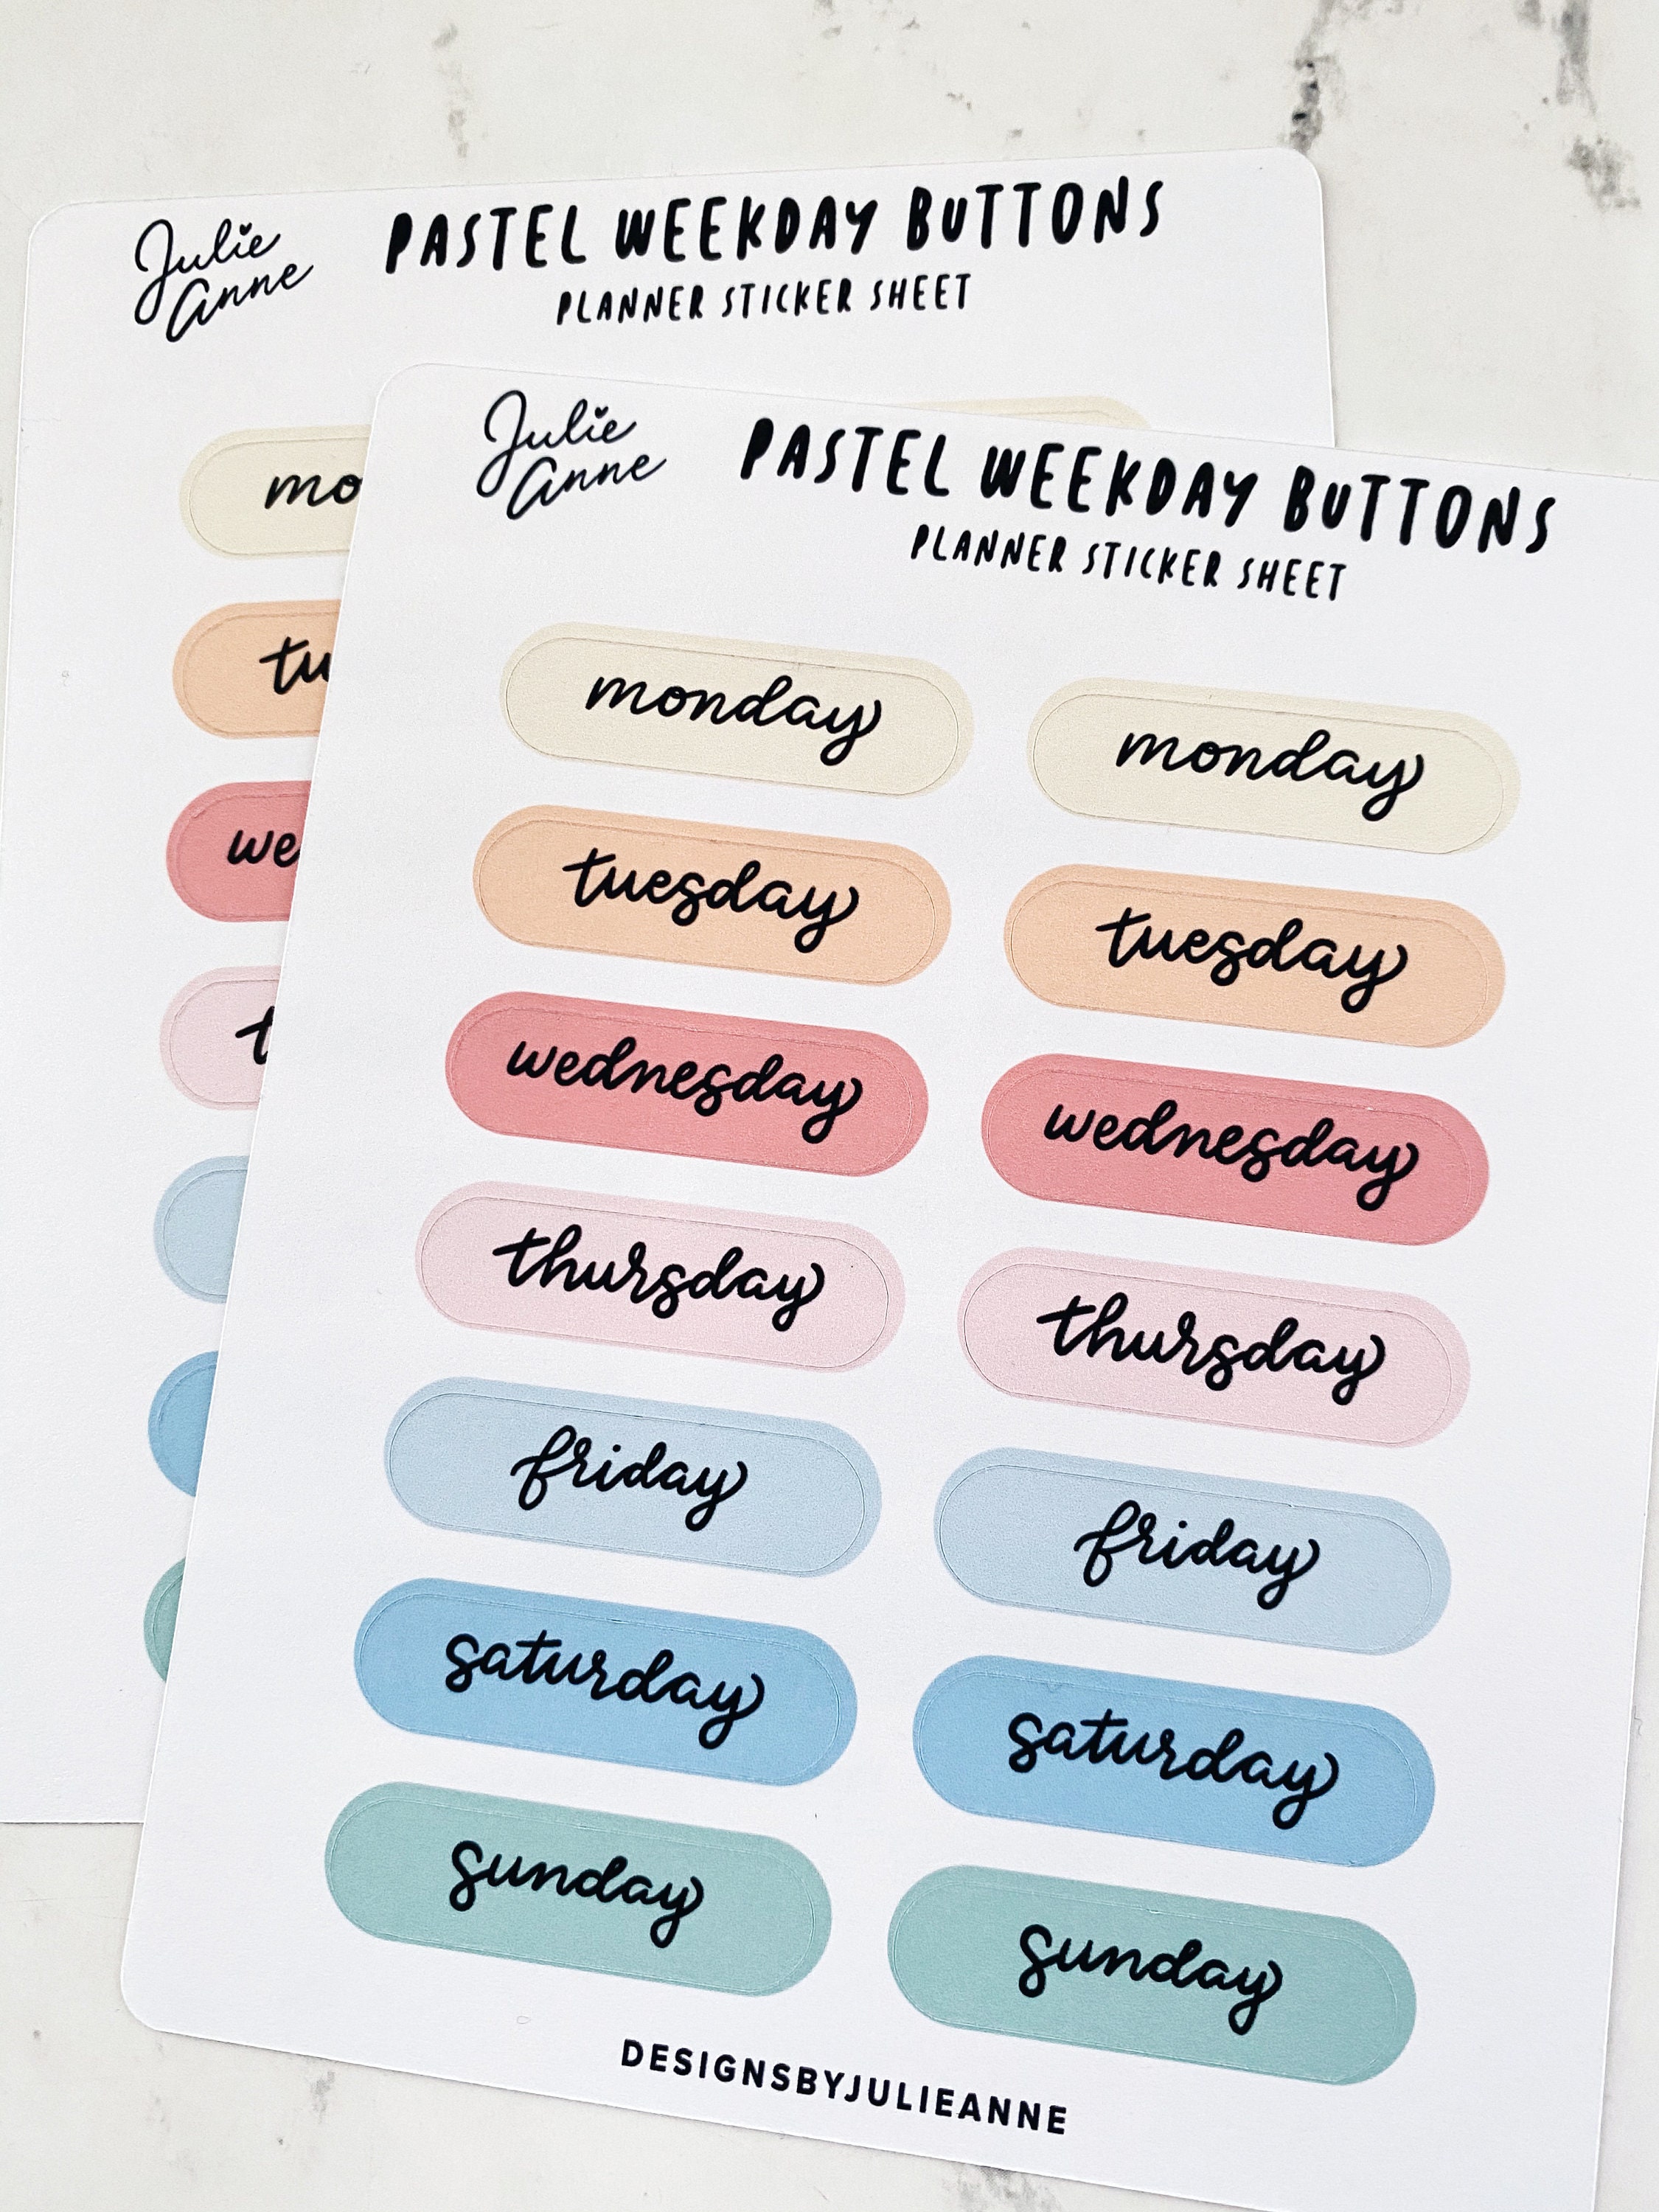 Julie
Anne
PASTEL WEEKDAY BUTTONS
PLANNER STICKER SHEET
mo
tu
we
t
Julie
Anne
PASTEL WEEKDAY BUTTONS
PLANNER STICKER SHEET
monday monday
tuesday tuesday
wednesday wednesday
thursday thursday
friday friday
saturday saturday
sunday sunday
DESIGNSBYJULIEANNE